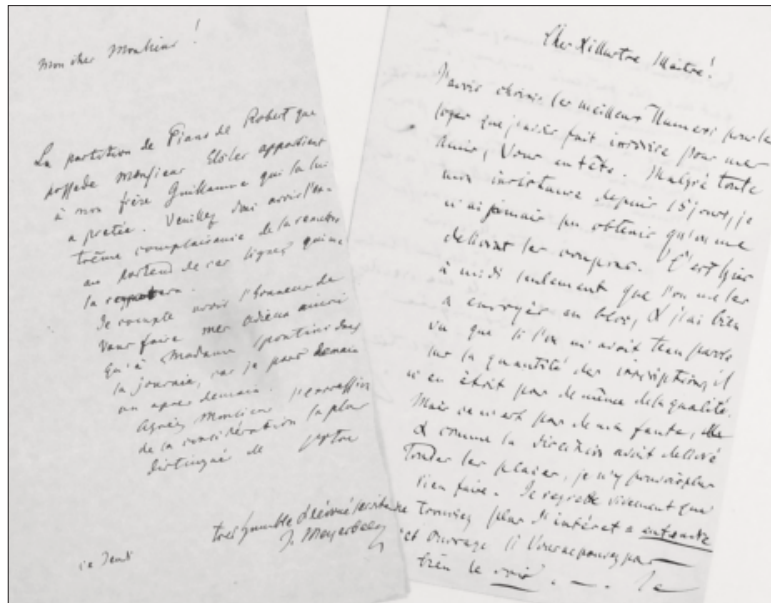 Mon cher Monsieur!
La partition de Piano de Robert que
possede Monsieur Elsler appartient
à mon frère Guillaume qui la lui
a pretée. Veuillez donc avoir l'ex-
trême complaisance de la remettre
au porteur de ces lignes qui me
la
Je compte avoir l'honneur de
vous faire mes adieux ainsi
qu'à Madame Spontini dans
la journée, car je pars demain
ou apres demain.
Agréez Monsieur l'expression
de la considération la plus
distinguée de votre
tres humble & dévoué serviteur
J. Meyerbeer
ce Jeudi
Cher & illustre Maître!
J'avais choisi les meilleurs Numeros pour les
loges que j'avais fait inscrire pour mes
amis, Vous en tête. Malgré toute
mon insistance depuis 15 jours, je
n'ai jamais pu obtenir qu'on me
délivrât les coupons. C'est hier
à midi seulement que l'on me les
a envoyés en bloc, & j'ai bien
vu que si l'on m'avait tenu parole
sur la quantité des inscriptions, il
n'en étoit pas de même de la qualité.
Mais ce n'est pas de ma faute,
& comme la direction avait délivré
toutes les places, je n'y pouvais plus
rien faire. Je regrette vivement que
trouviez plus d'intérêt a entendre
cet ouvrage si Vous ne pouvez pas
bien le voir. — Je